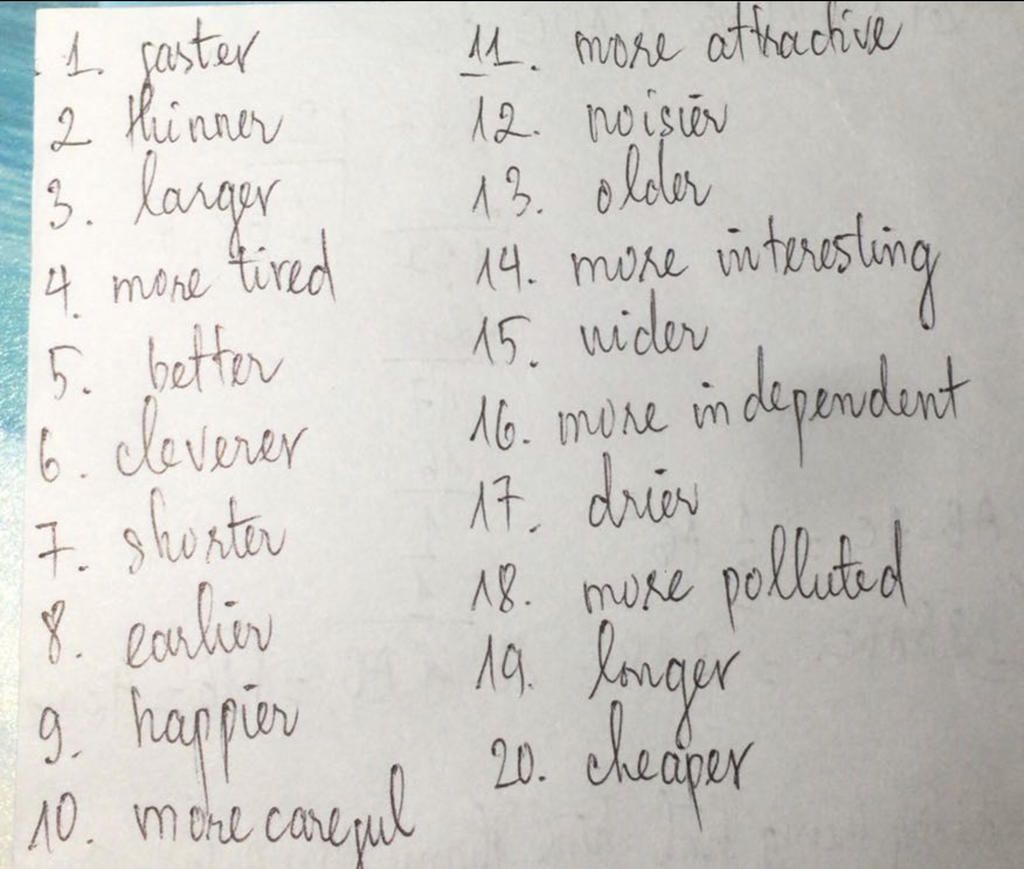 1. faster
2 thinner
3. larger
4. more tired
5. better
6. cleverer
7. shorter
8. earlier
9. happier
10. more careful
11. more attractive
12. noisier
13. older
14. more interesting
15. wider
16. more independent
17. drier
18. more polluted
19. longer
20. cheaper